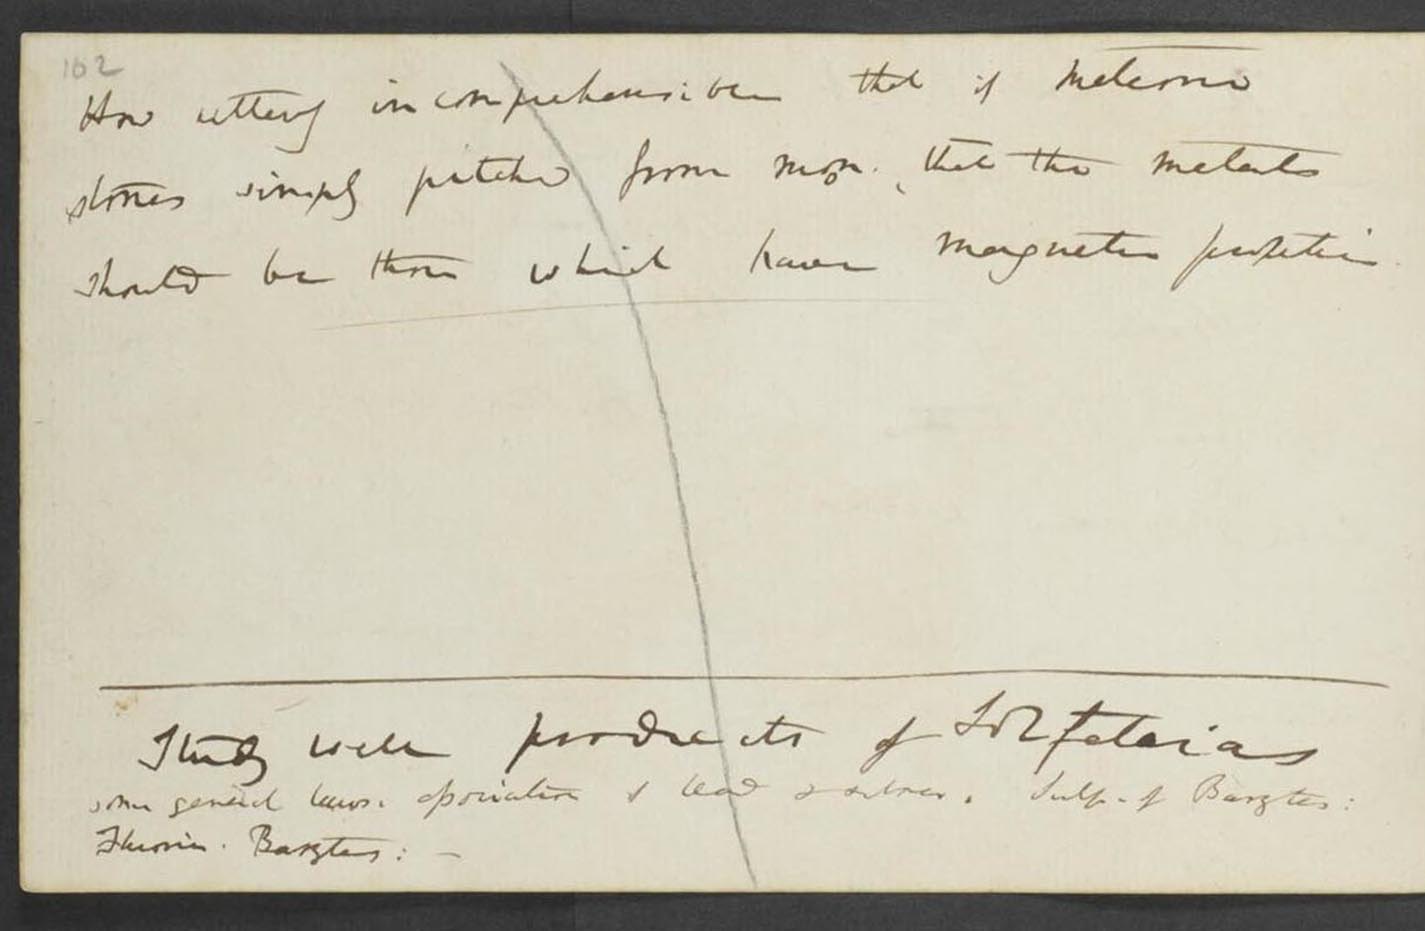 162
How utterly incomprehensible that if meteoric
stones simply pitched from moon, that the metals
should be those which have magnetic properties.
Study well products of Solfataras
some general laws. association of lead & silver. Sulp. of Barytes:
Fluoric. Barytes: —